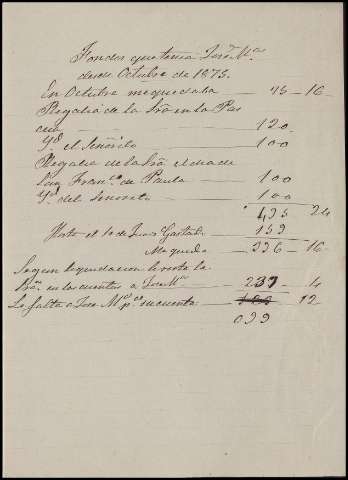 Fondos que tenia José Mª
desde Octubre de 1875.
En Octubre me quedaba — 75-16
Regalia de la Srã en la Pas
cua — 120
Yd. el Señorito — 100
Regalia de la Srã el dia de
San Franco de Paula — 100
Yd. del Señorito — 100
495 24
Hasta el 1º de Gastado 159
Me queda — 336-16
Segun liquidacion le resta la
Srã en las cuentas a José Mª — 237-4
Le falta a José Mª pª su cuenta — 12
099